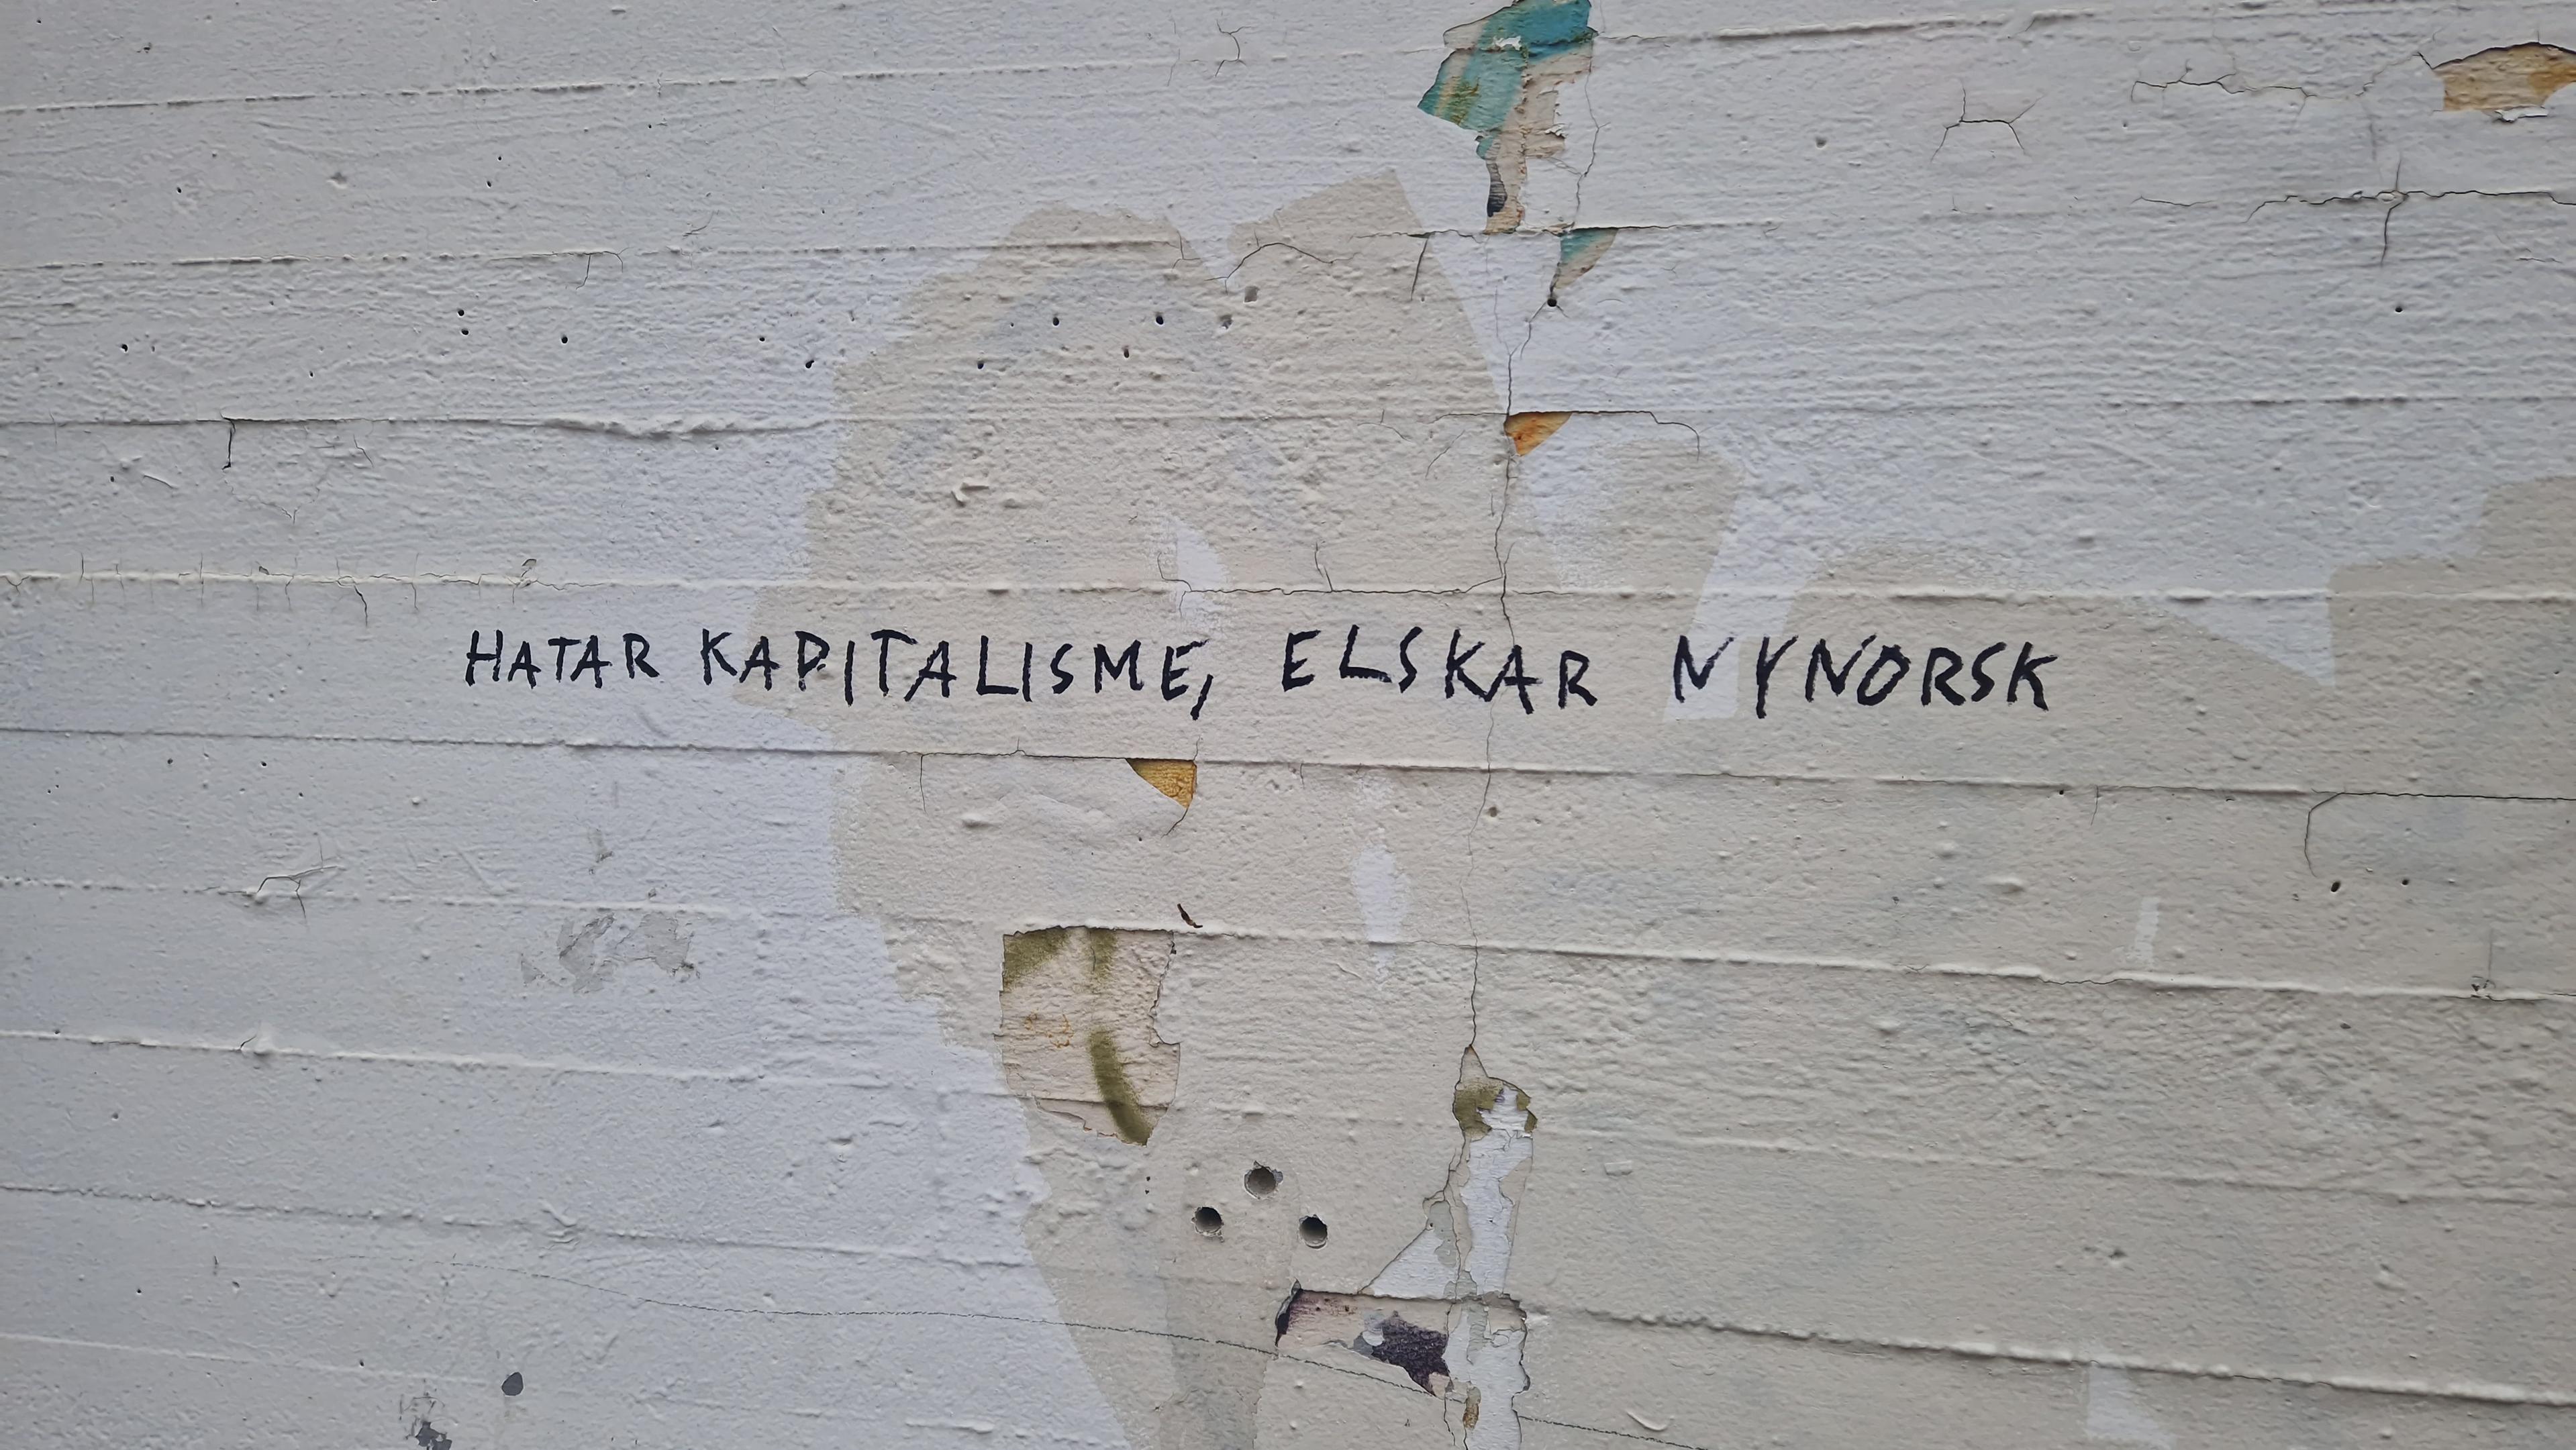 HATAR KAPITALISME, ELSKAR NYNORSK